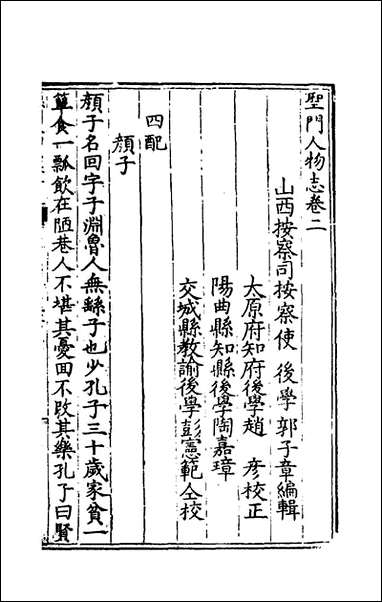 聖門人物志卷二
山西按察司按察使後學郭子章編輯
太原府知府後學趙彥校正
陽曲縣知縣後學陶嘉璋
交城縣教諭後學彭憲範仝校
四配
顏子
顏子名回字子淵魯人無繇子也少孔子三十歲家貧一
簞食一瓢飲在陋巷人不堪其憂回不改其樂孔子曰賢